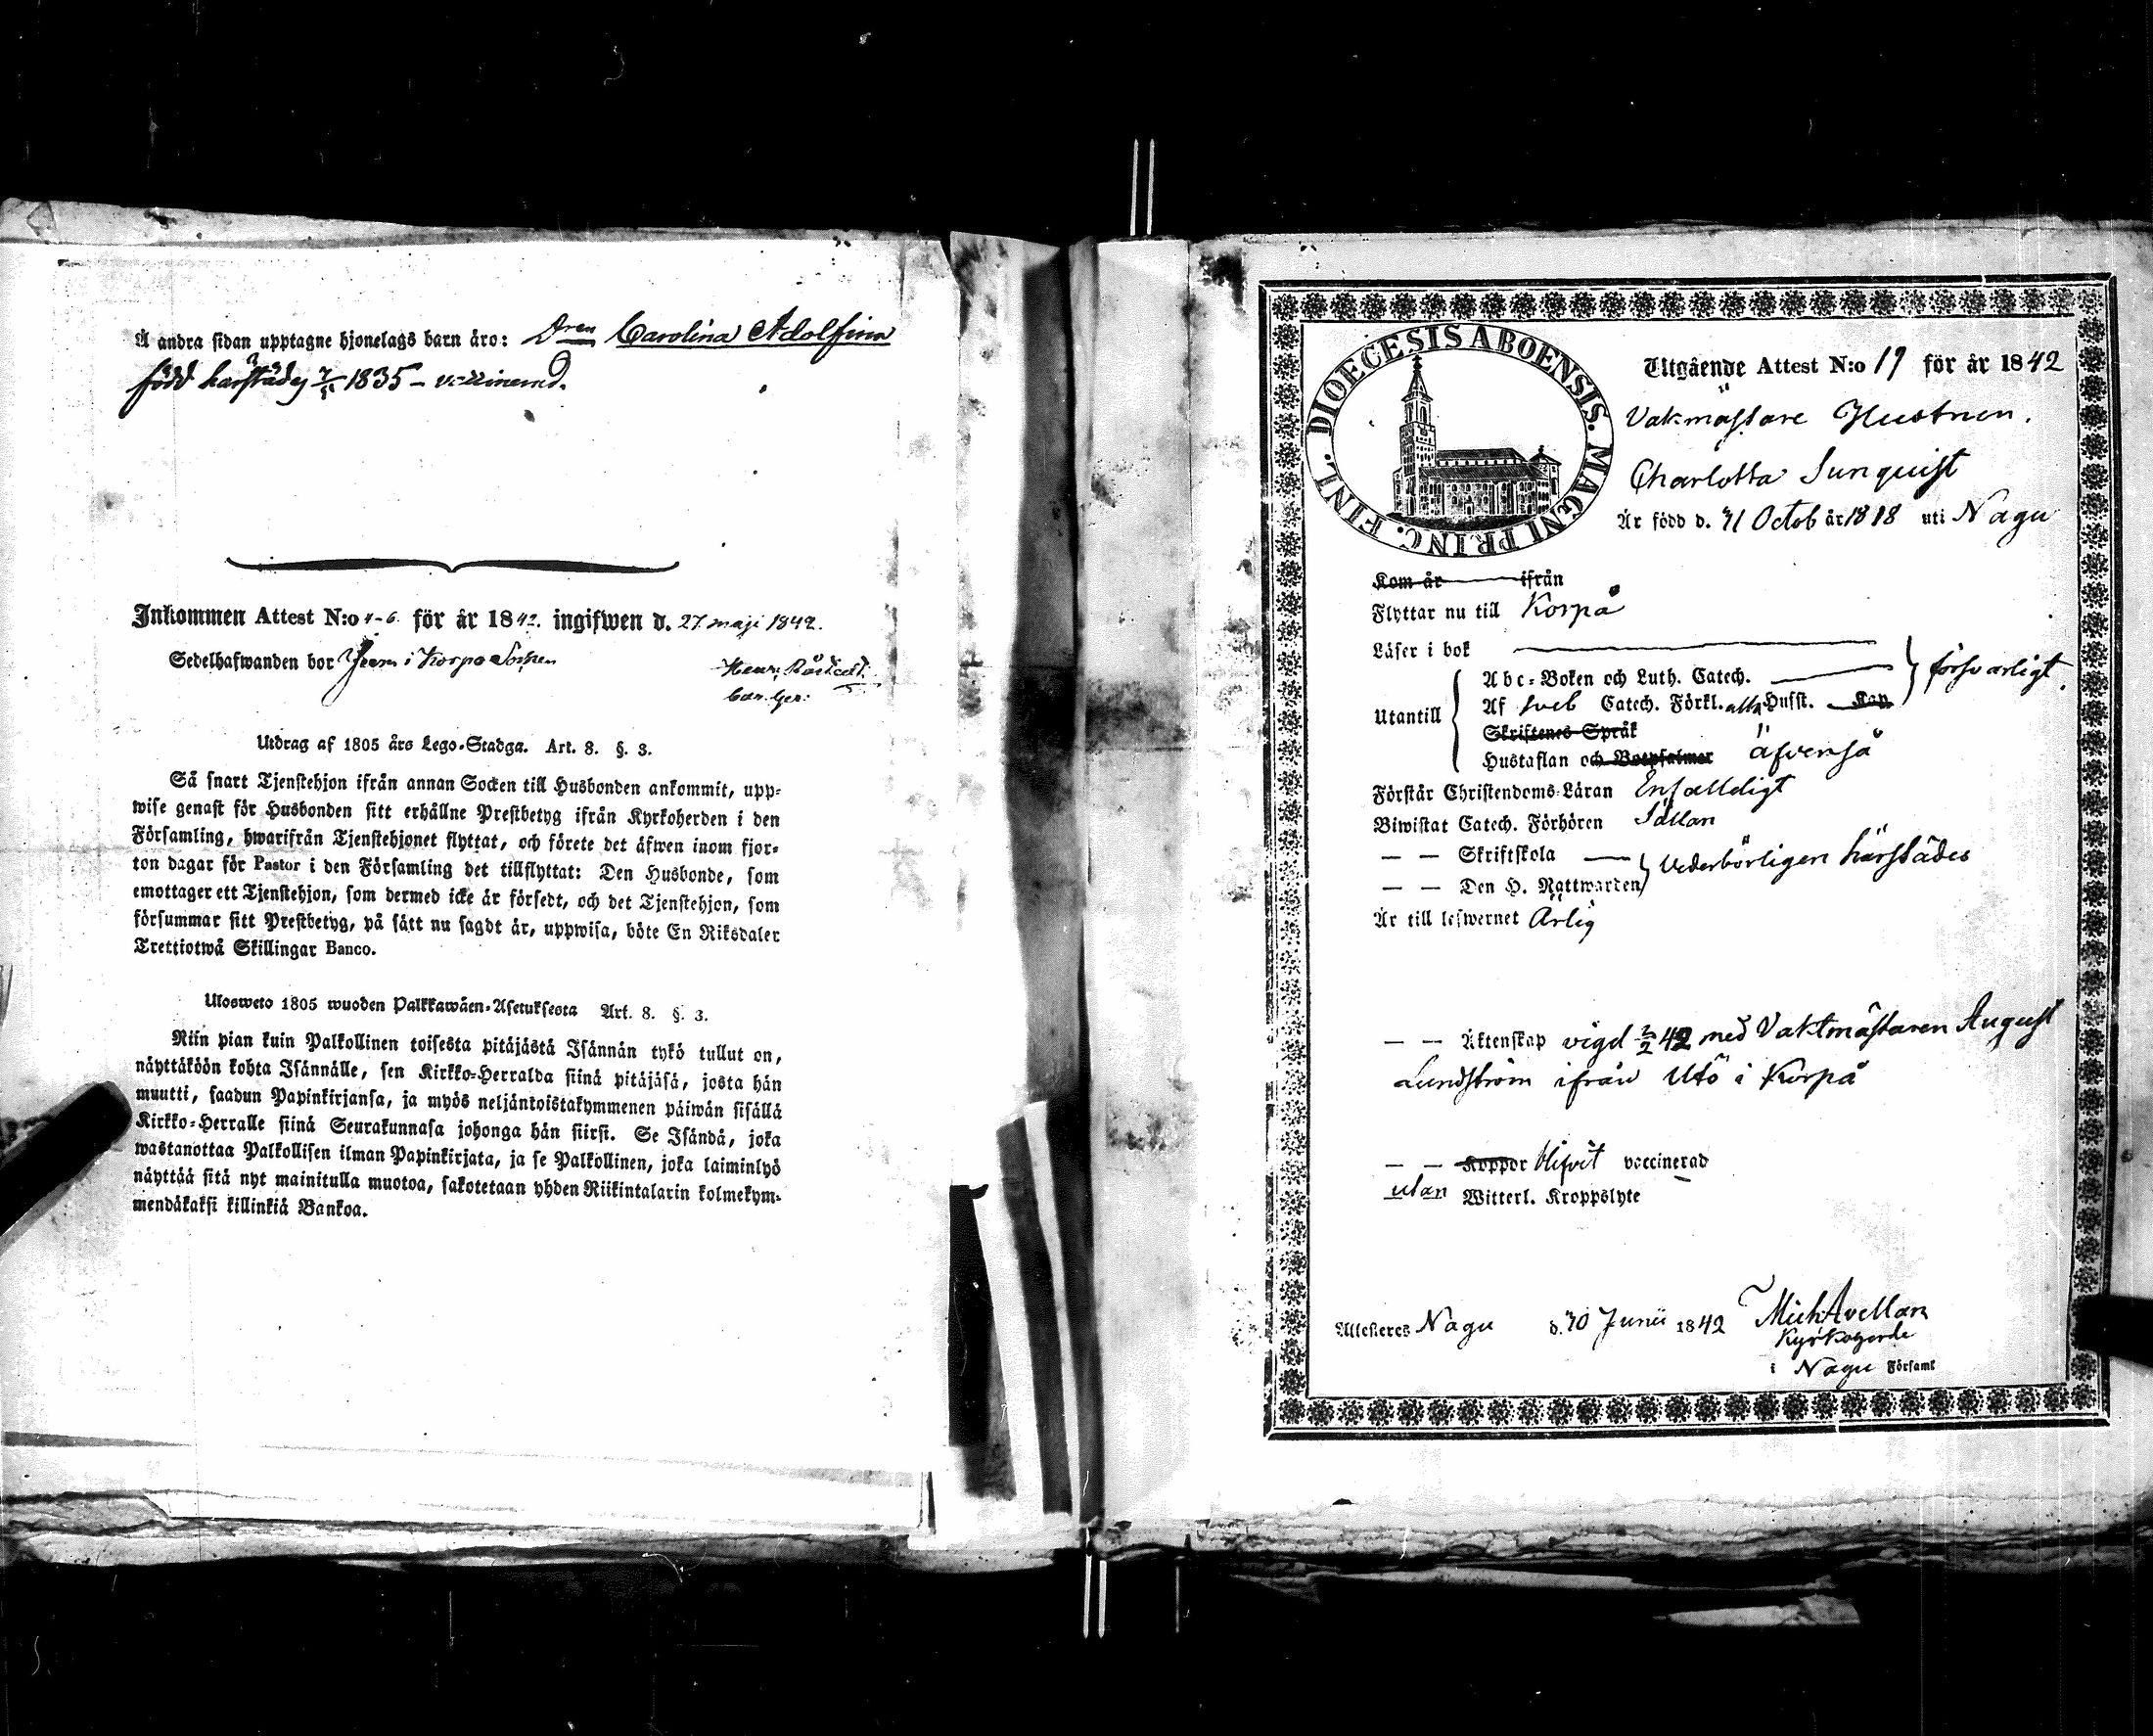 Å andra sidan upptagne hjonelags barn äro: Dren Carolina Adolfina
född härstädes 1835 – vaccinerad.
Inkommen Attest N:o för år 1842. ingifwen d. 27 maji 1842.
Sedelhafwanden bor i Korpo Socken
Utdrag af 1805 års Lego-Stadga. Art. 8. §. 3.
Så snart Tjenstehjon ifrån annan Socken till Husbonden ankommit, upp-
wise genast för Husbonden sitt erhållne Prestbetyg ifrån Kyrkoherden i den
Församling, hwarifrån Tjenstehjonet flyttat, och förete det äfwen inom fjor-
ton dagar för Pastor i den Församling det tillflyttat: Den Husbonde, som
emottager ett Tjenstehjon, som dermed icke är försedt, och det Tjenstehjon, som
försummar sitt Prestbetyg, på sätt nu sagdt är, uppwisa, böte En Riksdaler
Trettiotwå Skillingar Banco.
Ulosweto 1805 wuoden Palkkawäen-Asetuksesta Art. 8. §. 3.
Niin pian kuin Palkollinen toisesta pitäjästä Isännän tykö tullut on,
näyttäköön kohta Isännälle, sen Kirkko-Herralda siinä pitäjäsä, josta hän
muutti, saadun Papinkirjansa, ja myös neljäntoistakymmenen päiwän sisällä
Kirkko-Herralle siinä Seurakunnasa johonga hän siirsi. Se Isändä, joka
wastanottaa Palkollisen ilman Papinkirjata, ja se Palkollinen, joka laiminlyö
näyttää sitä nyt mainitulla muotoa, sakotetaan yhden Riikintalarin kolmekym-
mendäkaksi killinkiä Bankoa.
DIOECESIS ABOENSIS. MAGNI PRINC. FINL.
Utgående Attest N:o 19 för år 1842
Vakmästare Hustrun.
Charlotta Sunquist
Är född d. 31 Octob år 1818 uti Nagu
Kom år ifrån
Flyttar nu till Korpå
Läser i bok
Abc-Boken och Luth. Catech. försvarligt
Utantill Af sveb Catech. Förkl. alla Husst. Kap
Skriftenes Språk
Hustaflan och Botpsalmer äfvenså
Förstår Christendoms-Läran Enfalldigt
Biwistat Catech. Förhören Sällan
— — Skriftskola
— — Den H. Nattwarden vederbörligen härstädes
Är till lefwernet Ärlig
— — Äktenskap vigd 42 med Vaktmästaren August
Lundström ifrån Utö i Korpå
— — Koppor blifvit vaccinerad
utan Witterl. Kroppslyte
Attesteres Nagu d. 30 Junii 1842 Mich Avellan
Kyrkoherde
i Nagu Församl